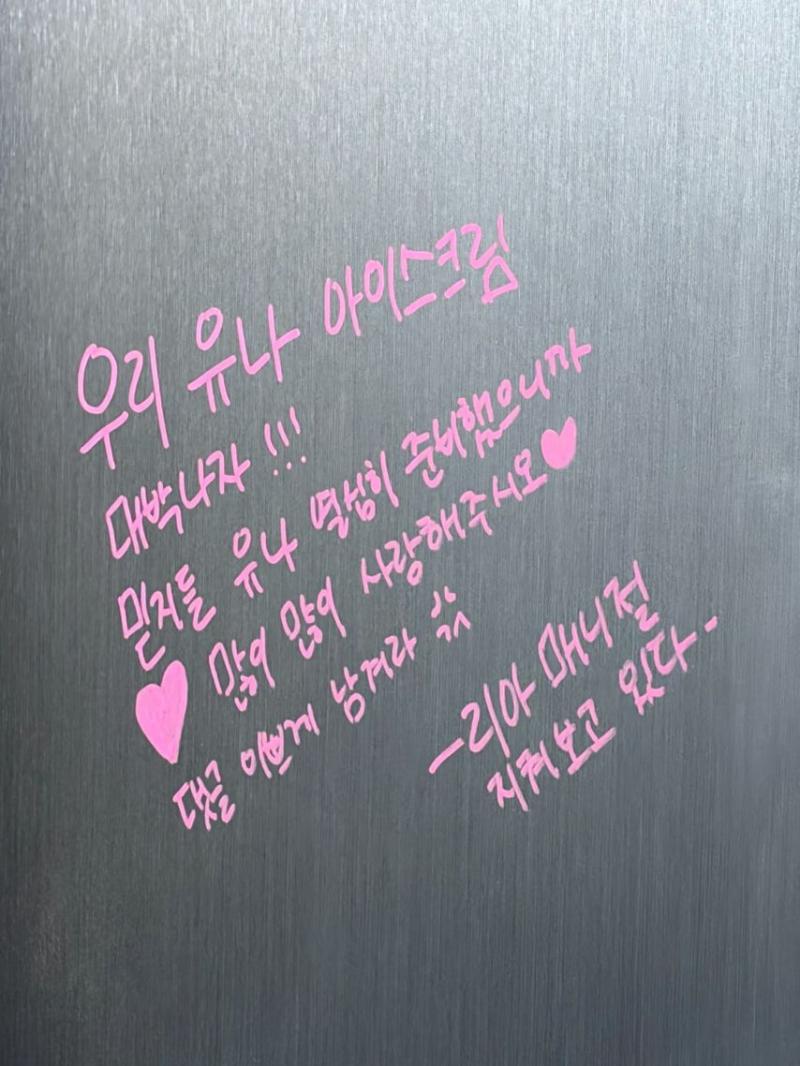 우리 유나 아이스크림
대박나자 !!!
믿지들 유나 열심히 준비했으니까
많이 많이 사랑해주시오♥
♥
댓글 이쁘게 남겨라 ㅆㅆ
-리아 매니절
지켜보고 있다-